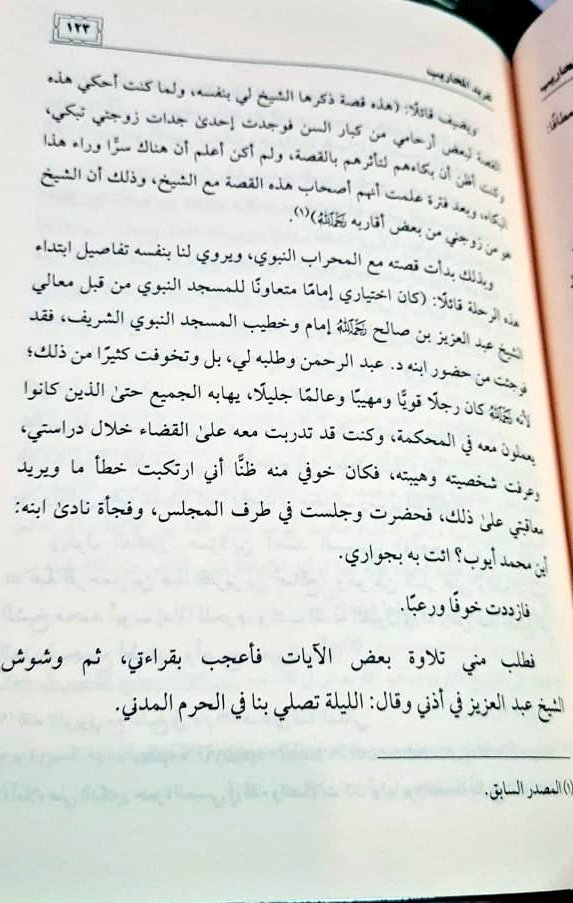 ١٢٣
غريد المحاريب
ويضيف قائلًا: (هذه قصة ذكرها الشيخ لي بنفسه، ولما كنت أحكي هذه
القصة لبعض أرحامي من كبار السن فوجدت إحدى جدات زوجتي تبكي،
وكنت أظن أن بكاءهم لتأثرهم بالقصة، ولم أكن أعلم أن هناك سرًّا وراء هذا
البكاء، وبعد فترة علمت أنهم أصحاب هذه القصة مع الشيخ، وذلك أن الشيخ
هو من زوجني من بعض أقاربه رَحِمَهُ اللهُ)(١).
وبذلك بدأت قصته مع المحراب النبوي، ويروي لنا بنفسه تفاصيل ابتداء
هذه الرحلة قائلًا: (كان اختياري إمامًا متعاونًا للمسجد النبوي من قبل معالي
الشيخ عبد العزيز بن صالح رَحِمَهُ اللهُ إمام وخطيب المسجد النبوي الشريف، فقد
فوجئت من حضور ابنه د. عبد الرحمن وطلبه لي، بل وتخوفت كثيرًا من ذلك؛
لأنه رَحِمَهُ اللهُ كان رجلًا قويًّا ومهيبًا وعالمًا جليلًا، يهابه الجميع حتىٰ الذين كانوا
يعملون معه في المحكمة، وكنت قد تدربت معه علىٰ القضاء خلال دراستي،
وعرفت شخصيته وهيبته، فكان خوفي منه ظنًّا أني ارتكبت خطأ ما ويريد
معاقبتي علىٰ ذلك، فحضرت وجلست في طرف المجلس، وفجأة نادىٰ ابنه:
أين محمد أيوب؟ ائت به بجواري.
فازددت خوفًا ورعبًا.
فطلب مني تلاوة بعض الآيات فأعجب بقراءتي، ثم وشوش
الشيخ عبد العزيز في أذني وقال: الليلة تصلي بنا في الحرم المدني.
(١) المصدر السابق.
حاريب